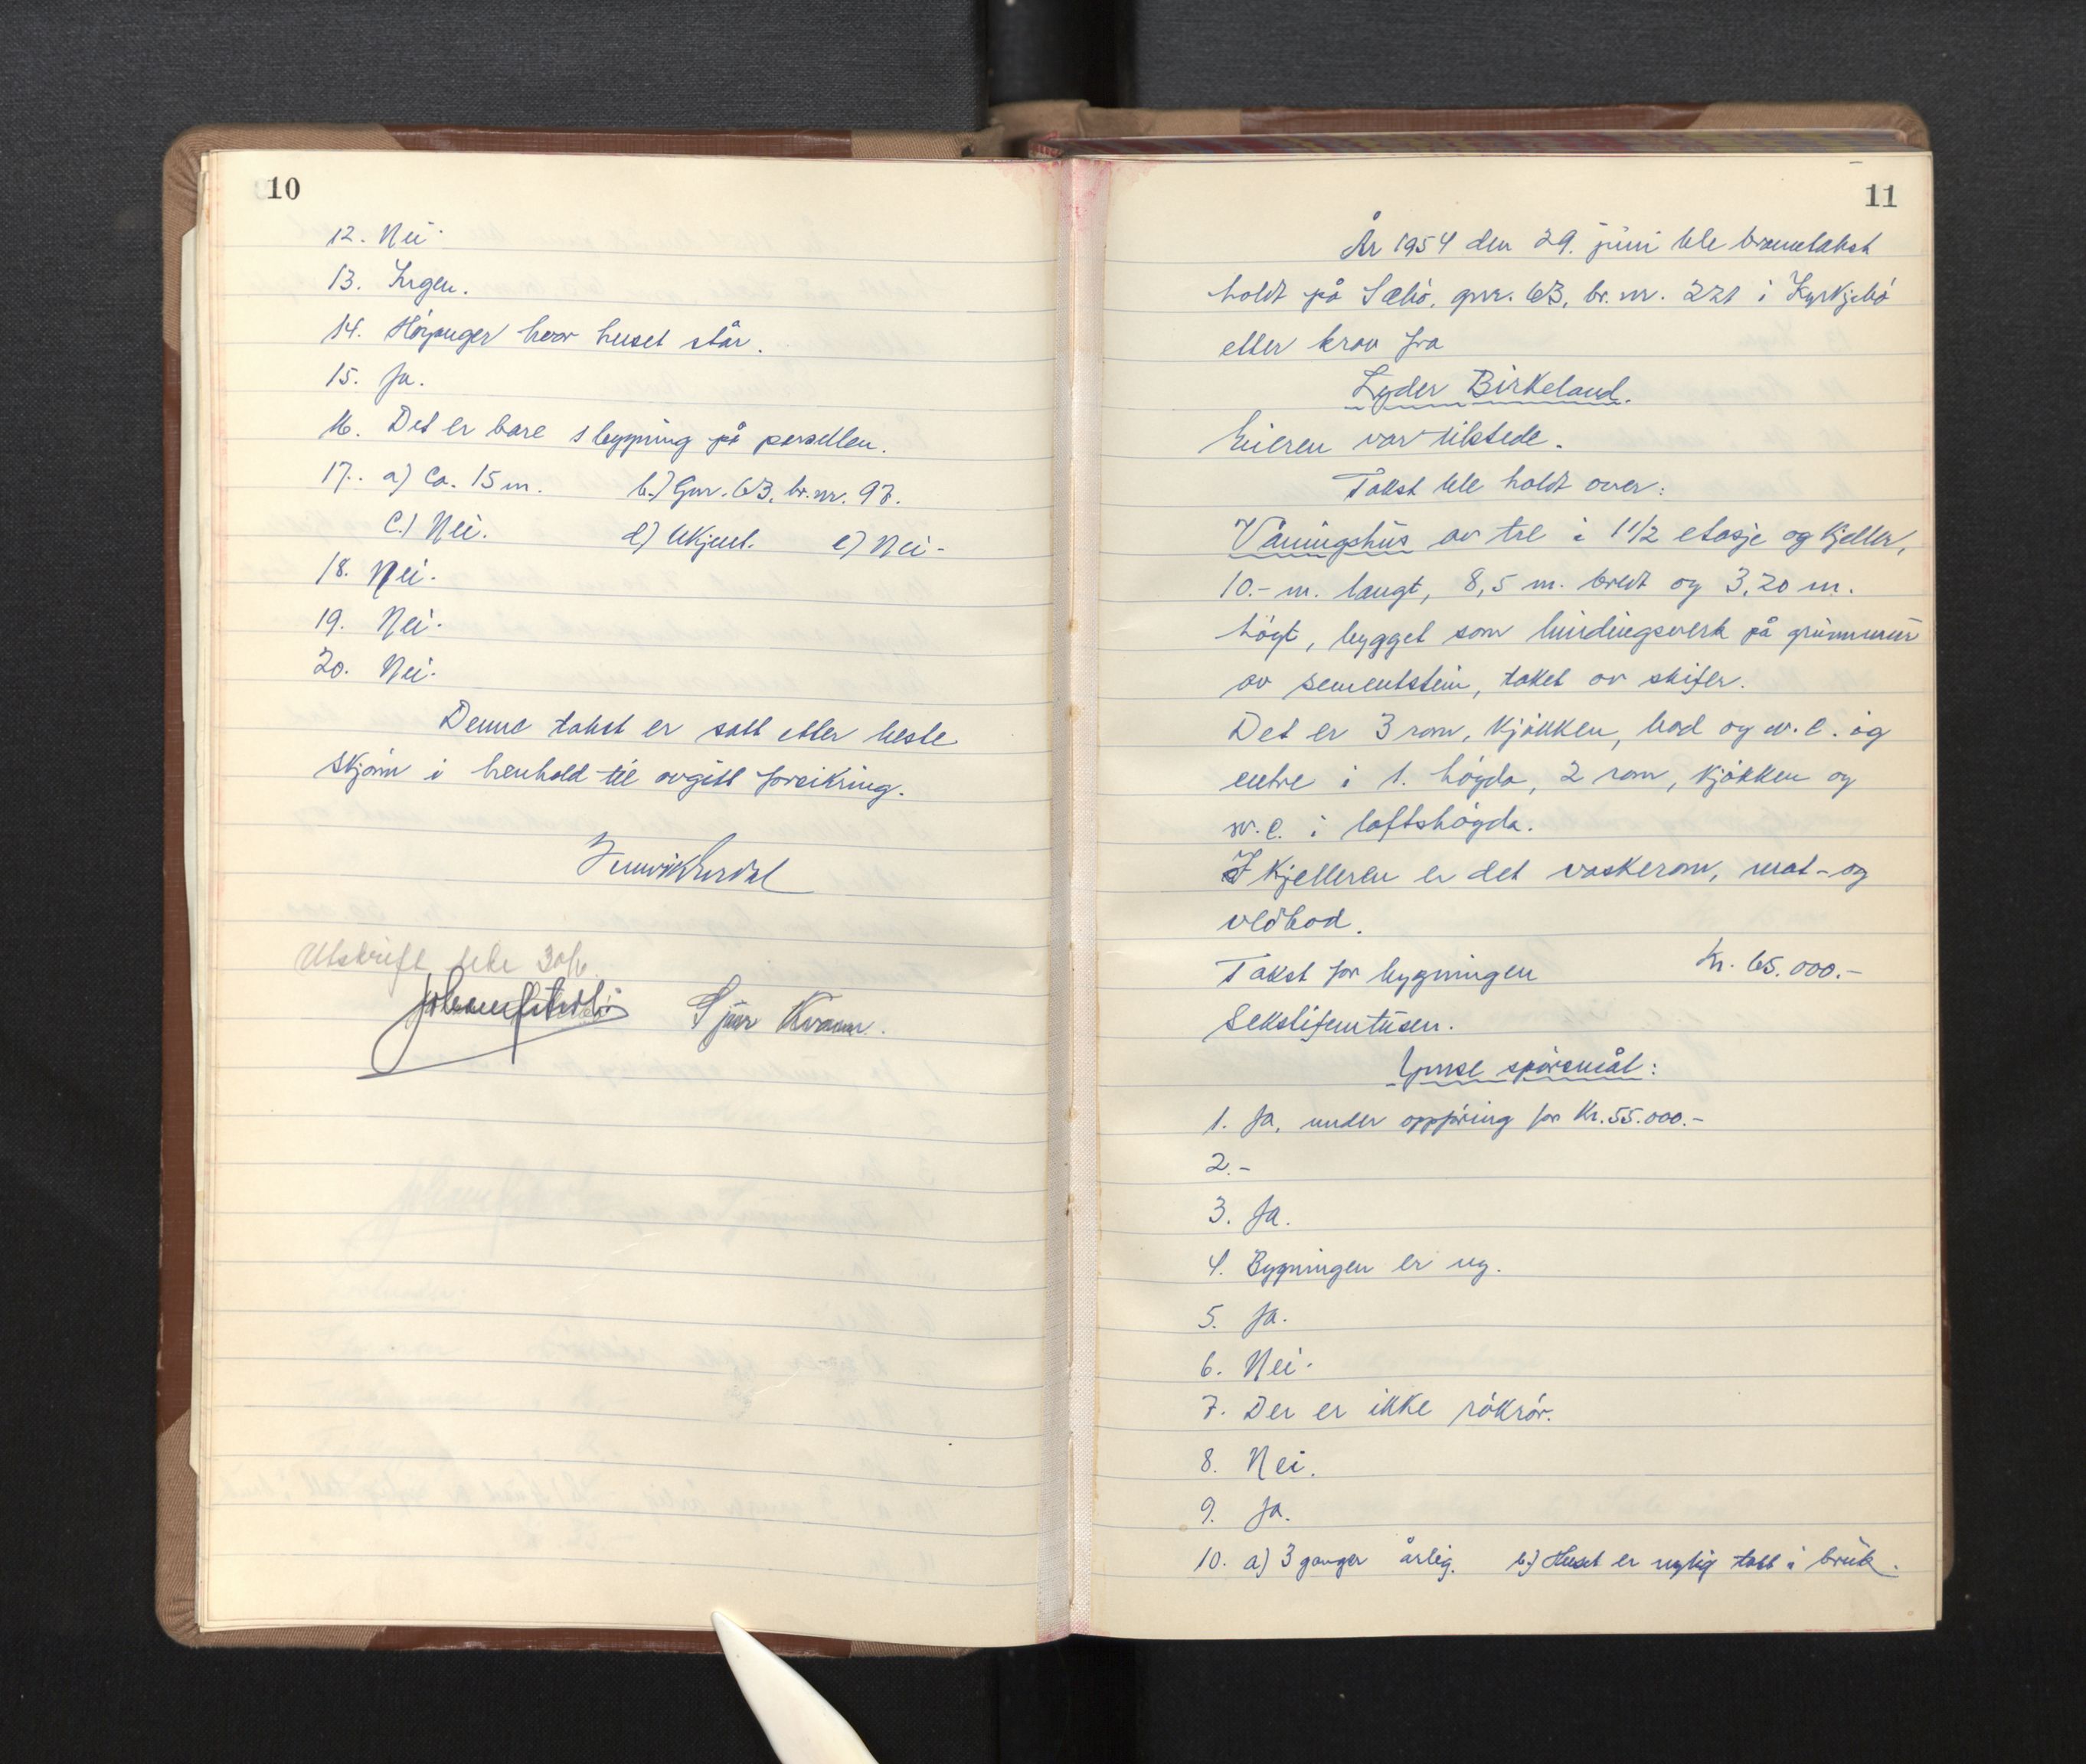 10
12. Nei.
13. Ingen.
14. Höyanger hvor huset står.
15. Ja.
16. Det er bare 1 bygning på parsellen.
17. a) Ca. 15 m. b.) Gnr. 63, br.nr. 97.
C.) Nei. d) Ukjent. e) Nei.
18. Nei.
19. Nei.
20. Nei.
Denne takst er satt etter beste
skjönn i henhold til avgitt forsikring.
Utskrift 30/6.
Sjur Kvamm.
11
År 1954 den 29. juni ble branntakst
holdt på Sæbö, gnr. 63, br. nr. 221 i Kyrkjebö
etter krav fra
Lyder Birkeland.
Eieren var tilstede.
Takst ble holdt over:
Våningshus av tre i 1 1/2 etasje og kjeller,
10.- m. langt, 8,5 m. bredt og 3,20 m.
högt, bygget som bindingsverk på grunnmur
av sementstein, taket av skifer.
Det er 3 rom, kjökken, bad og w.c. og
entre i 1. högda, 2 rom, kjökken og
w.c. i loftshögda.
I kjelleren er det vaskerom, mat- og
vedbod.
Takst for bygningen Kr. 65.000.-
Sekstifemtusen.
Ymse spörsmål:
1. Ja, under oppföring for Kr. 55.000.-
2. -
3. Ja.
4. Bygningen er ny.
5. Ja.
6. Nei.
7. Der er ikke rökrör.
8. Nei.
9. Ja.
10. a) 3 ganger årlig. b.) Huset er nylig tatt i bruk.